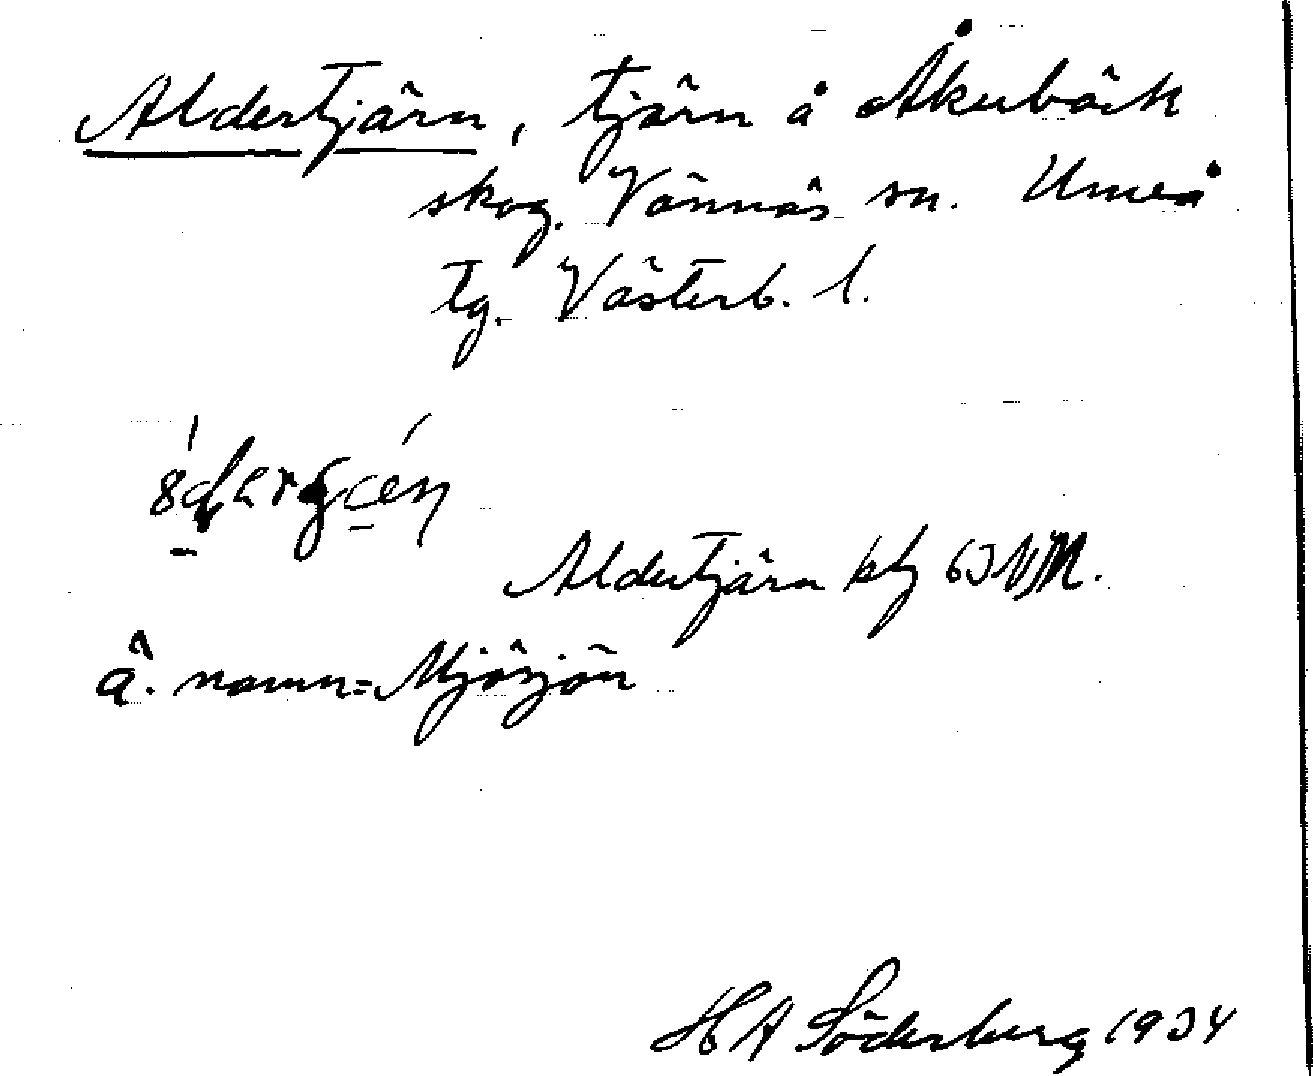 Aldertjärn, tjärn å Åkerbäck
skog. Vännäs sn. Umeå
tg. Västerb. l.
Aldertjärn kbl 63 NV
Ä. namn = Mjösjön
H A Söderberg 1934